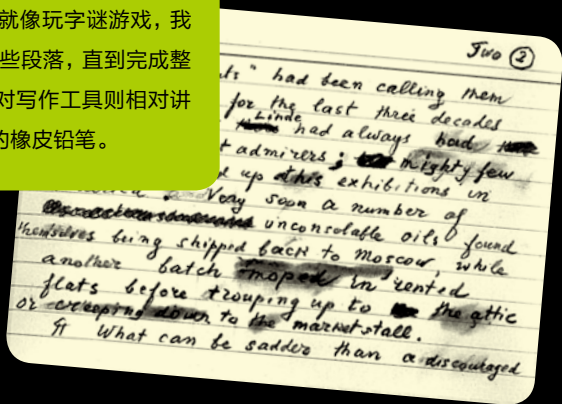 就像玩字谜游戏，我
些段落，直到完成整
对写作工具则相对讲
的橡皮铅笔。
Two ②
" had been calling them
for the last three decades
Linde had always had
admirers; mighty few
up at his exhibitions in
Very soon a number of
unconsolable oils found
themselves being shipped back to Moscow, while
another batch moped in rented
flats before trouping up to the attic
or creeping down to the market stall.
¶ What can be sadder than a discouraged